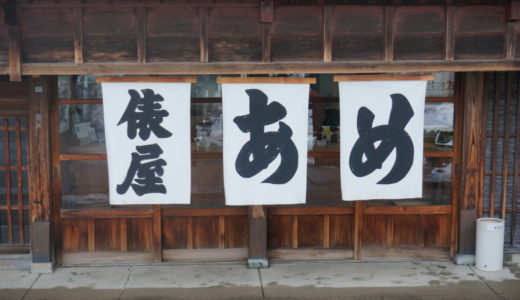 俵屋
あめ